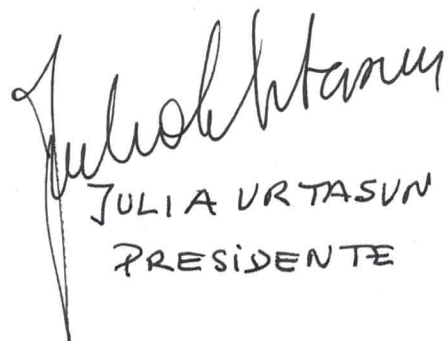 Julia Urtasun
JULIA URTASUN
PRESIDENTE